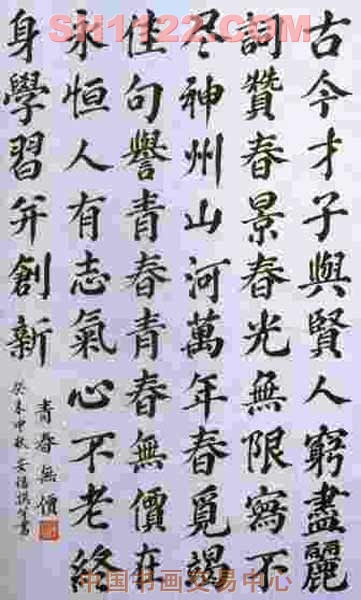 SH1122.COM
古今才子與賢人窮盡麗
詞贊春景春光無限寫不
尽神州山河萬年春覓竭
佳句譽青春青春無價在
永恒人有志氣心不老終
身學習并創新
青春無價
癸未仲秋安福撰并書
中国书画交易中心